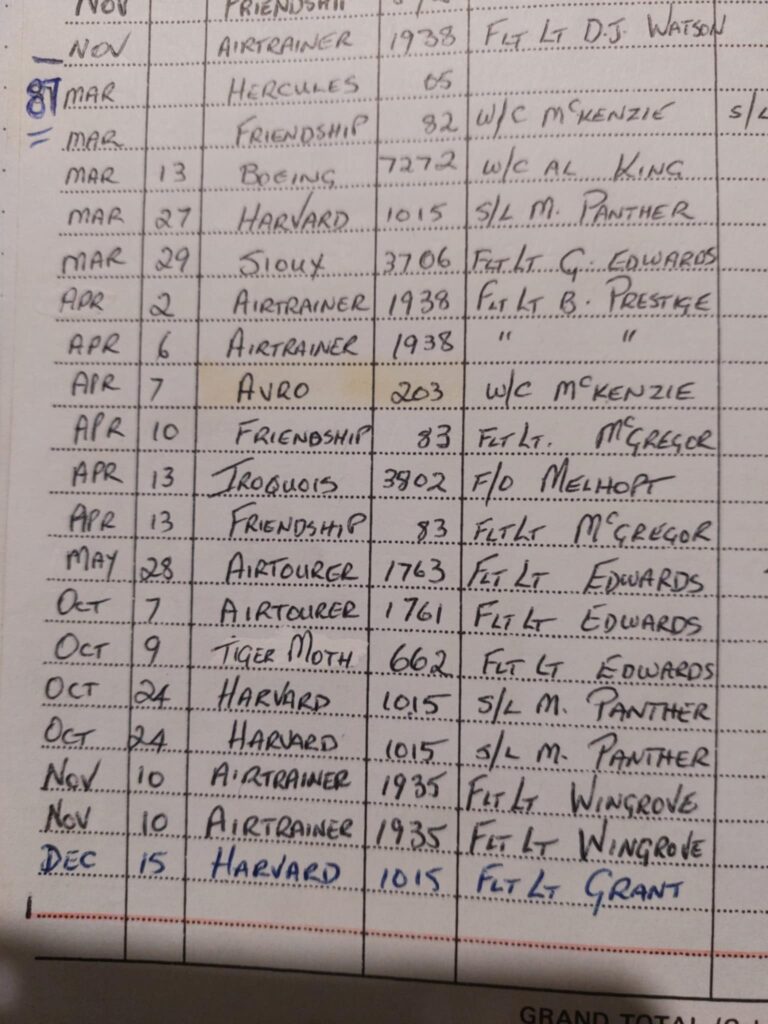 NOV FRIENDSHIP
NOV AIRTRAINER 1938 FLT LT D.J. WATSON
87 MAR HERCULES 05
MAR FRIENDSHIP 82 W/C McKENZIE S/L
MAR 13 BOEING 7272 W/C AL KING
MAR 27 HARVARD 1015 S/L M. PANTHER
MAR 29 SIOUX 3706 FLT LT G. EDWARDS
APR 2 AIRTRAINER 1938 FLT LT B. PRESTIGE
APR 6 AIRTRAINER 1938 " "
APR 7 AVRO 203 W/C McKENZIE
APR 10 FRIENDSHIP 83 FLT LT. McGREGOR
APR 13 IROQUOIS 3802 F/O MELHOPT
APR 13 FRIENDSHIP 83 FLT LT McGREGOR
MAY 28 AIRTOURER 1763 FLT LT EDWARDS
OCT 7 AIRTOURER 1761 FLT LT EDWARDS
OCT 9 TIGER MOTH 662 FLT LT EDWARDS
OCT 24 HARVARD 1015 S/L M. PANTHER
OCT 24 HARVARD 1015 S/L M. PANTHER
NOV 10 AIRTRAINER 1935 FLT LT WINGROVE
NOV 10 AIRTRAINER 1935 FLT LT WINGROVE
DEC 15 HARVARD 1015 FLT LT GRANT
GRAND TOTAL